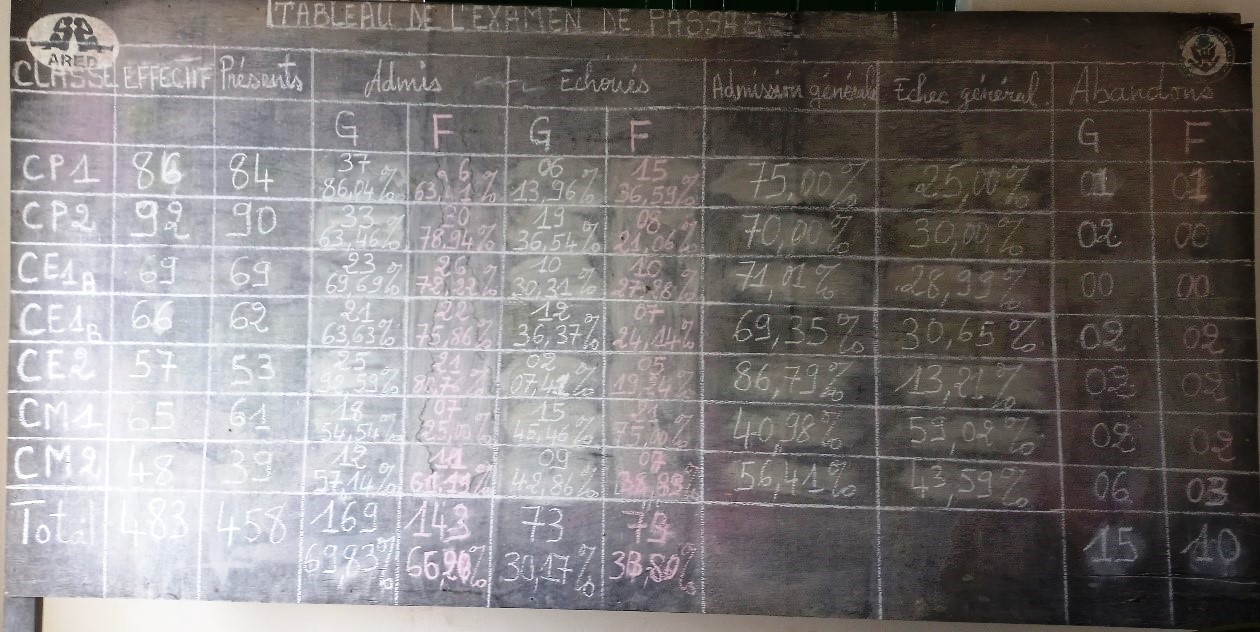 TABLEAU DE L'EXAMEN DE PASSAGE
ARED
CLASSE EFFECTIF Présents Admis Echoués Admission générale Echec général Abandons
G F G F G F
CP1 86 84 37 06 15 75,00% 25,00% 01 01
86,04% 13,96% 36,59%
CP2 92 90 33 30 19 08 70,00% 30,00% 02 00
63,46% 78,94% 36,54% 21,06%
CE1A 69 69 23 26 10 10 71,01% 28,99% 00 00
69,69% 30,31%
CE1B 66 62 21 22 12 07 69,35% 30,65% 02 02
63,63% 75,86% 36,37% 24,14%
CE2 57 53 25 21 02 05 86,79% 13,21% 02 02
CM1 65 61 18 07 15 21 40,98% 59,02% 02 02
54,54% 25,00% 45,46% 75,00%
CM2 48 39 12 11 09 07 56,41% 43,59% 06 03
57,14% 42,86%
Total 483 458 169 143 73 15 10
69,83% 30,17%